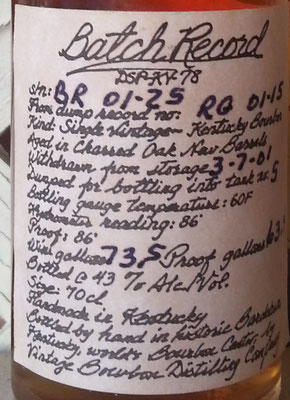 Batch Record
DSP-KY-78
s/n: BR 01-25
From dump record no: RG 01-15
Kind: Single Vintage~ Kentucky Bourbon
Aged in Charred Oak New Barrels
Withdrawn from storage 3-7-01
Dumped for bottling into tank no: 5
Bottling gauge temperature: 60F
Hydrometer reading: 86°
Proof: 86°
Wine gallons 73,5 Proof gallons 63.
Bottled @ 43 % Alc/Vol.
Size: 70cl
Handmade in Kentucky
Bottled by hand in historic Bardstown
Kentucky, world's Bourbon Center, by
Vintage Bourbon Distilling Company